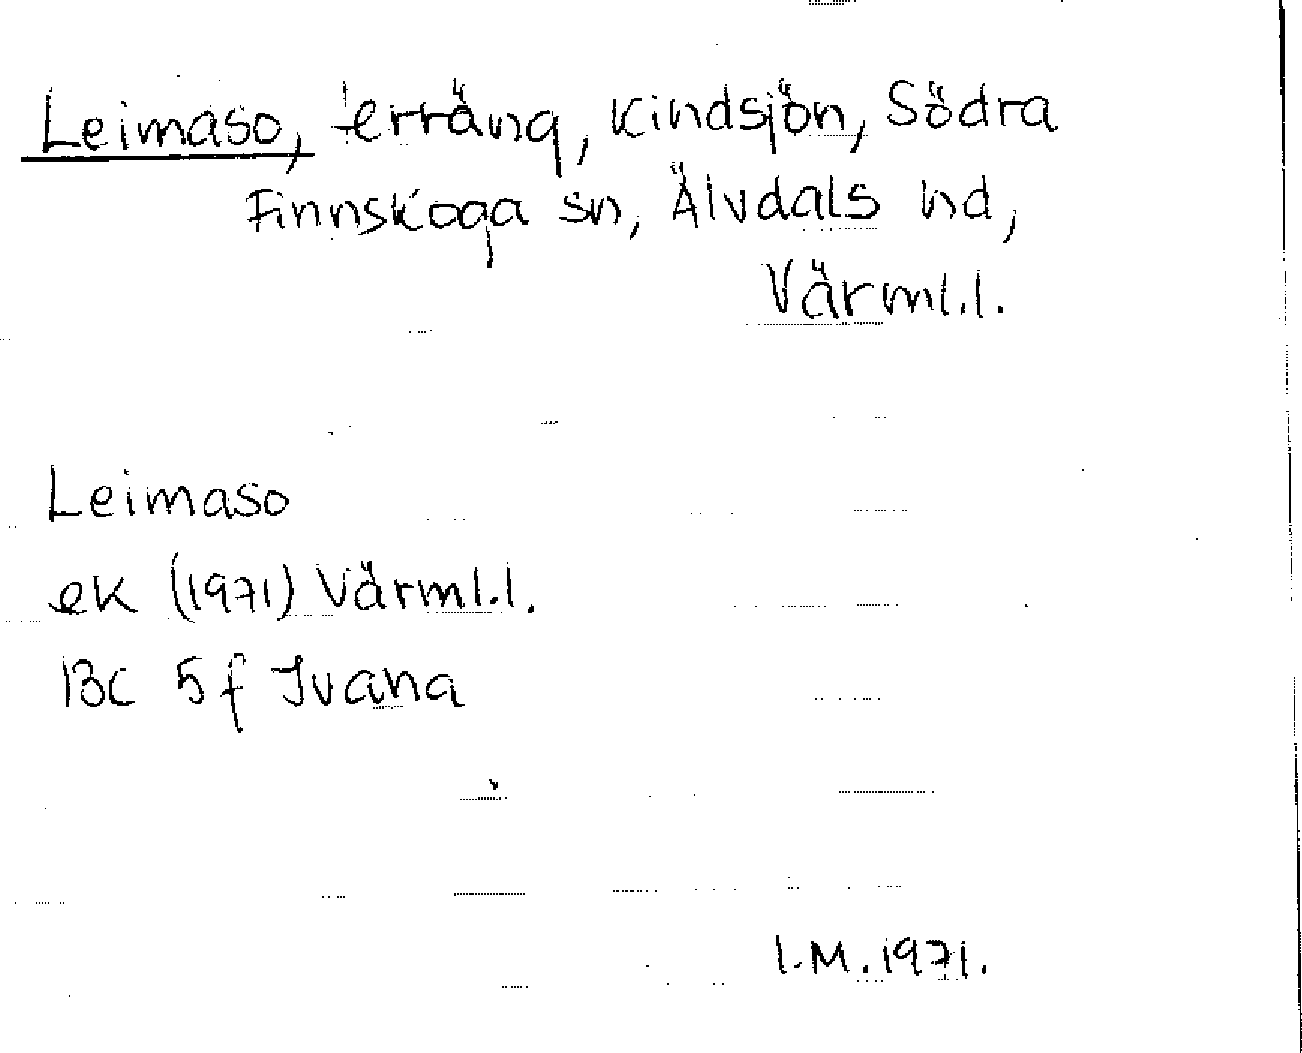 Leimaso, terräng, Kindsjön, Södra
Finnskoga sn, Älvdals hd,
Värml.l.
Leimaso
ek (1971) Värml.l.
13C 5f Ivana
I.M. 1971.